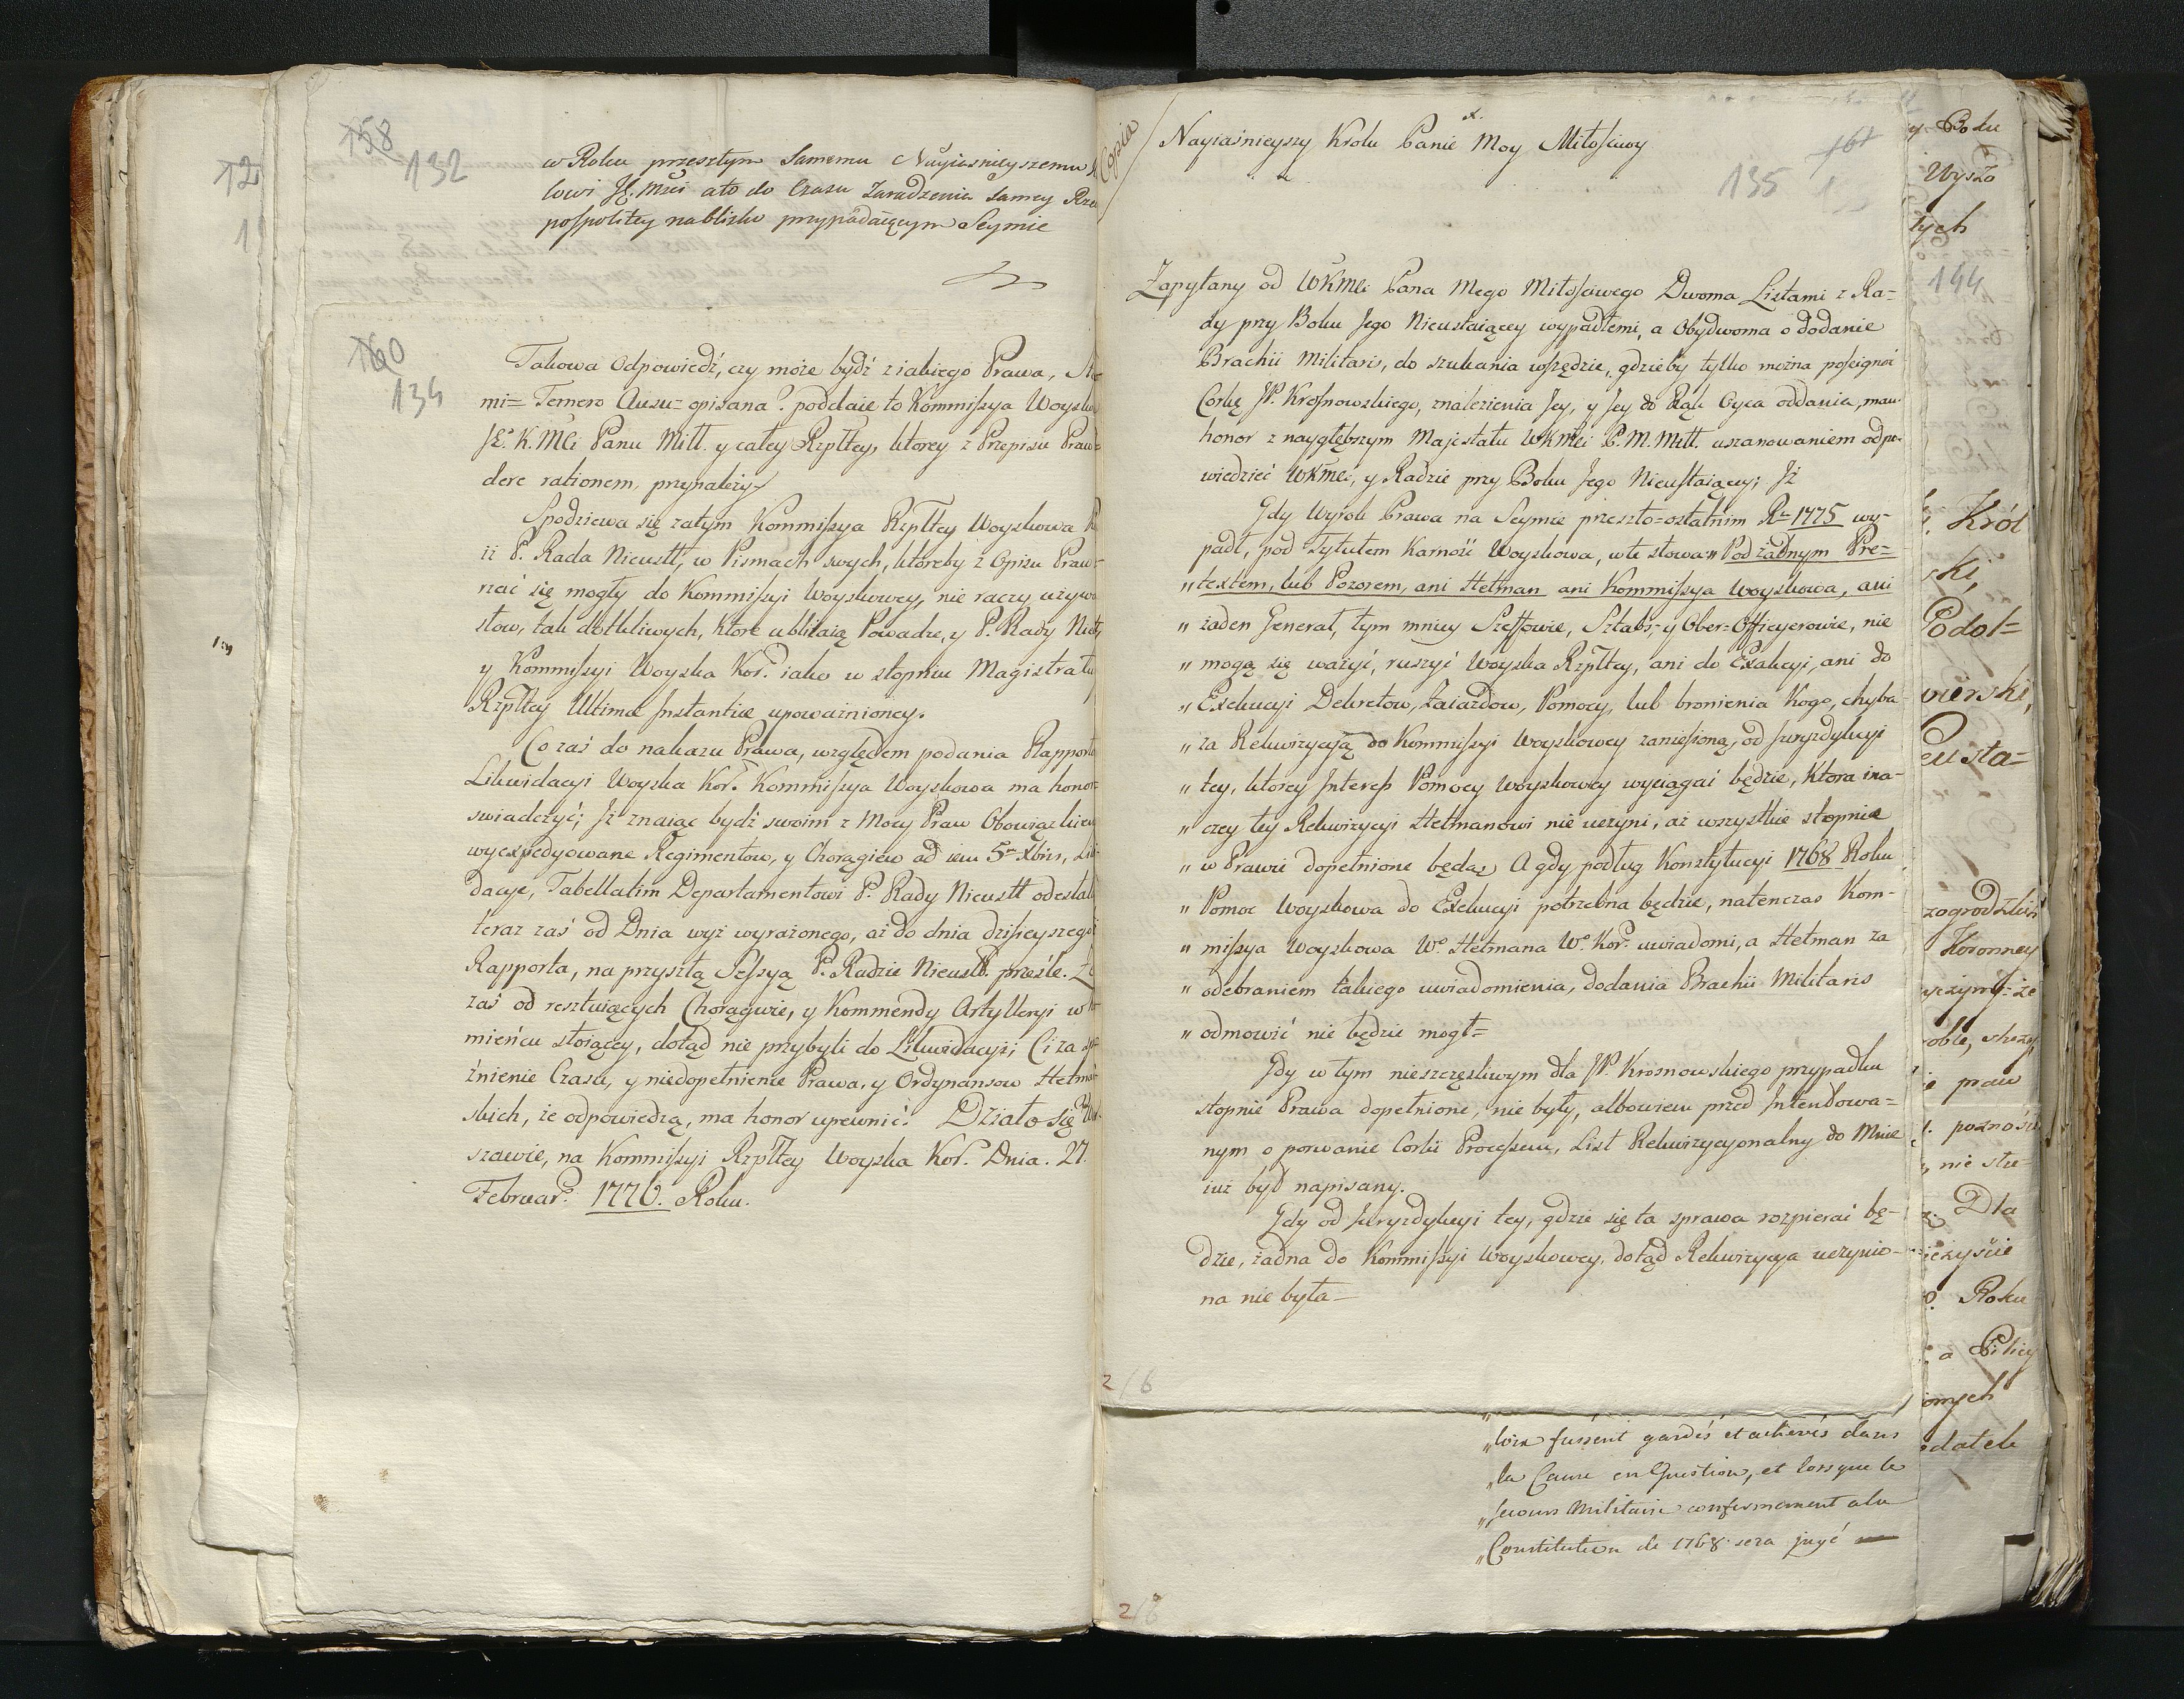 12
1
158
132
w Roku przeszłym Samemu Nayiasnieyszemu
lowi JK. Mści ato do Czasu Zaradzenia Samey Rze
pospolitey nablisko przypadaiącym Seymie
160
134
Takowa Odpowiedź, czy może bydź z iakiego Prawa,
mi= Temero Ausu= opisana? poddaie to Kommissya Woysko
JE. K. Mći Panu Miłł. y całey Rzpltey, ktorey z Przepisu Praw
dere rationem, przynależy
Spodziewa się zatym Kommissya Rzpltey Woyskowa
iż P. Rada Nieustt, w Pismach swych, ktoreby z Opisu Praw
rzać się mogły do Kommissyi Woyskowey, nie raczy używ
słow, tak dotkliwych, ktore ubliżaią Powadze, y P. Rady Nie
y Kommissyi Woyska Kor. iako w stopniu Magistratu
Rzpltey Ultimæ Instantiæ upoważnioney.
Co zaś do nakazu Prawa, względem podania Rapport
Likwidacyi Woyska Kor. Kommissya Woyskowa ma honor
swiadczyć; Jż znaiąc bydź swoim z Mocy Praw Obowiązkiem
wyexpedyowane Regimentow, y Chorągiew ad 5m Xbris, Li
dacye, Tabellatim Departamentowi P. Rady Nieustt odesłał
teraz zaś od Dnia wyż wyrażonego, aż do dnia dzisieyszego
Rapporta, na przyszłą Sessyą P. Radzie Nieustt. prześle.
zaś od resztuiących Chorągwie, y Kommendy Artylleryi w
mieńcu stoiącey, dotąd nie przybyli do Likwidacyi; Ci za
źnienie Czasu, y niedopełnienie Prawa, y Ordynansow Hetmań
skich, że odpowiedzą, ma honor upewnić. Działo się w
szawie, na Kommissyi Rzpltey Woyska Kor. Dnia. 27.
Februar. 1776. Roku.
Copia
Nayiaśnieyszy Krolu Panie Moy Miłościwy
161
135
Zapytany od WKMći Pana Mego Miłościwego Dwoma Listami z Ra=
dy przy Boku Jego Nieustaiącey wypadłemi, a Obydwoma o dodanie
Brachii Militaris, do szukania wszędzie, gdzieby tylko można posięgnąć
Corkę JP. Krosnowskiego, znalezienia Jey, y Jey do Rąk Oyca oddania, mam
honor z naygłębszym Majestatu WKMći P. M. Miłł. uszanowaniem odpo-
wiedzieć WKMći, y Radzie przy Boku Jego Nieustaiącey; Jż
Gdy Wyrok Prawa na Seymie przeszło=ostatnim Ru 1775 wy-
padł, pod Tytułem Karność Woyskowa, w te słowa " Pod żadnym Pre=
" textem, lub Pozorem, ani Hetman ani Kommissya Woyskowa, ani
" żaden Generał, tym mniey Szeffowie, Sztabs- y Ober=Officyerowie, nie
" mogą się ważyć, ruszyć Woyska Rzpltey, ani do Exakcyi, ani do
" Exekucyi Dekretow, Zaiazdow, Pomocy, lub bronienia Kogo, chyba-
" za Rekwizycyją do Kommissyi Woyskowey zaniesioną, od Juryzdykcyi
" tey, ktorey Interess Pomocy Woyskowey wyciągać będzie, Ktora ina-
" czey tey Rekwizycyi Hetmanowi nie uczyni, aż wszystkie stopnie
" w Prawie dopełnione będą; A gdy podług Konstytucyi 1768 Roku
" Pomoc Woyskowa do Exekucyi potrzebna będzie, natenczas Kom-
" missya Woyskowa Wo. Hetmana Wo. Kor. uwiadomi, a Hetman za
" odebraniem takiego uwiadomienia, dodania Brachii Militaris
" odmowić nie będzie mogł=
Gdy w tym nieszczęsliwym dla JP. Krosnowskiego przypadku
stopnie Prawa dopełnione, nie były, albowiem przed Intendowa=
nym o porwanie Corki Processem, List Rekwizycyonalny do Mnie
iuż był napisany.
Gdy od Juryzdykcyi tey, gdzie się ta sprawa rozpierać bę-
dzie, żadna do Kommissyi Woyskowey, dotąd Rekwizycya uczynio-
na nie była—
2/6
" loix fussent gardés et achevés dans
" la Cause en Question, et lorsque le
" secours Militaire conformement a la
" Constitution de 1768 sera jugé
2/6
y Boku
Wyszo
tych
144
Król
ski,
Podol=
wierski,
eusta=
Koronney
praw
nie stu=
Dla
Roku
a
omych